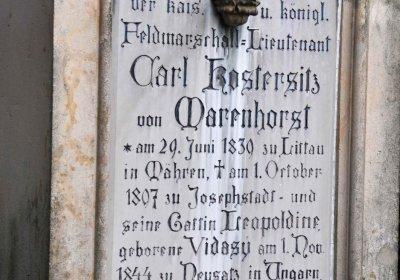 der kais. u. königl.
Feldmarschall-Lieutenant
Carl Kostersitz
von Marenhorst
* am 29. Juni 1830 zu Littau
in Mähren, † am 1. October
1897 zu Josephstadt - und
seine Gattin Leopoldine,
geborene Vidasy am 1. Nov.
1844 zu Neusatz in Ungarn